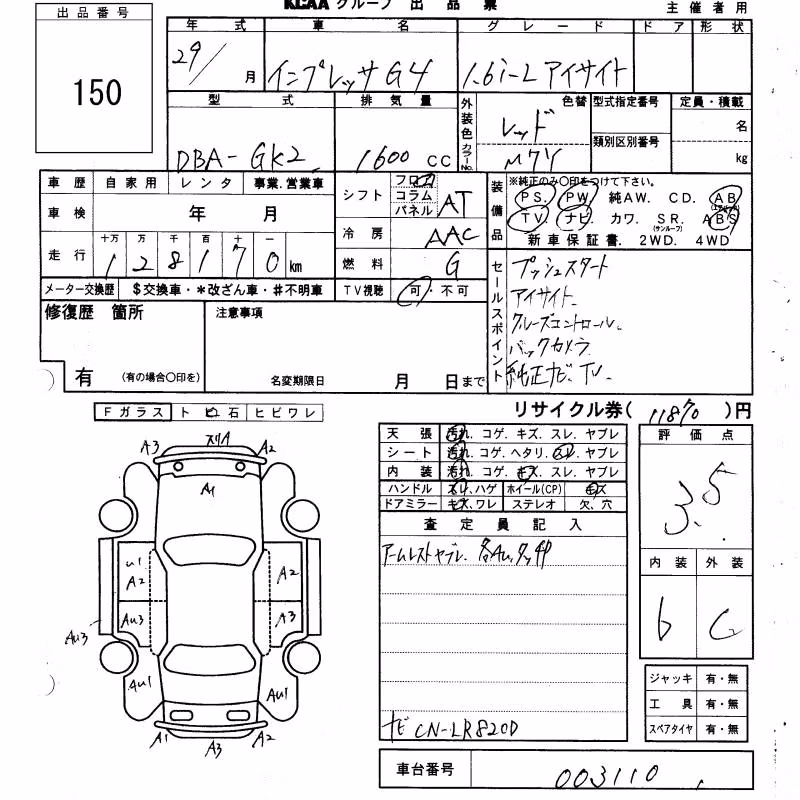 KCAA グループ 出品票 主催者用
出品番号
150
年式 車名 グレード ドア 形状
29/ 月 インプレッサG4 1.6i-L アイサイト
型式 排気量 外装色 カラーNo. 色替 型式指定番号 定員・積載
DBA-GK2 1600 CC レッド M7Y 類別区別番号 名 kg
車歴 自家用 レンタ 事業.営業車
車検 年 月
走行 十万 万 千 百 十 一
1 2 8 1 7 0 km
メーター交換歴 $交換車・*改ざん車・#不明車
シフト フロア コラム パネル AT
冷房 AAC
燃料 G
TV視聴 可・不可
装備品 ※純正のみ〇印をつけて下さい。
PS. PW 純AW. CD. AB (エアバッグ)
TV ナビ カワ. SR. (サンルーフ) ABS
新車保証書. 2WD. 4WD
セールスポイント
プッシュスタート
アイサイト、
クルーズコントロール、
バックカメラ
純正ナビ、TV、
修復歴 箇所
有 (有の場合〇印を)
注意事項
名変期限日 月 日まで
リサイクル券( 11870 )円
Fガラス トビ石 ヒビワレ
天張 汚れ. コゲ. キズ. スレ. ヤブレ
シート 汚れ. コゲ. ヘタリ. スレ. ヤブレ
内装 汚れ. コゲ. キズ. スレ. ヤブレ
ハンドル スリ、ハゲ ホイール(CP) キズ
ドアミラー キズ、ワレ ステレオ 欠、穴
査定員記入
アームレストヤブレ、各AU、タッチP
ナビ CN-LR820D
評価点
3.5
内装 外装
b C
ジャッキ 有・無
工具 有・無
スペアタイヤ 有・無
車台番号 003110
A3 スリA A2
A1
U1
A2 A2
AU3 A3
AU3
AU1 AU1
A1 A3 A2